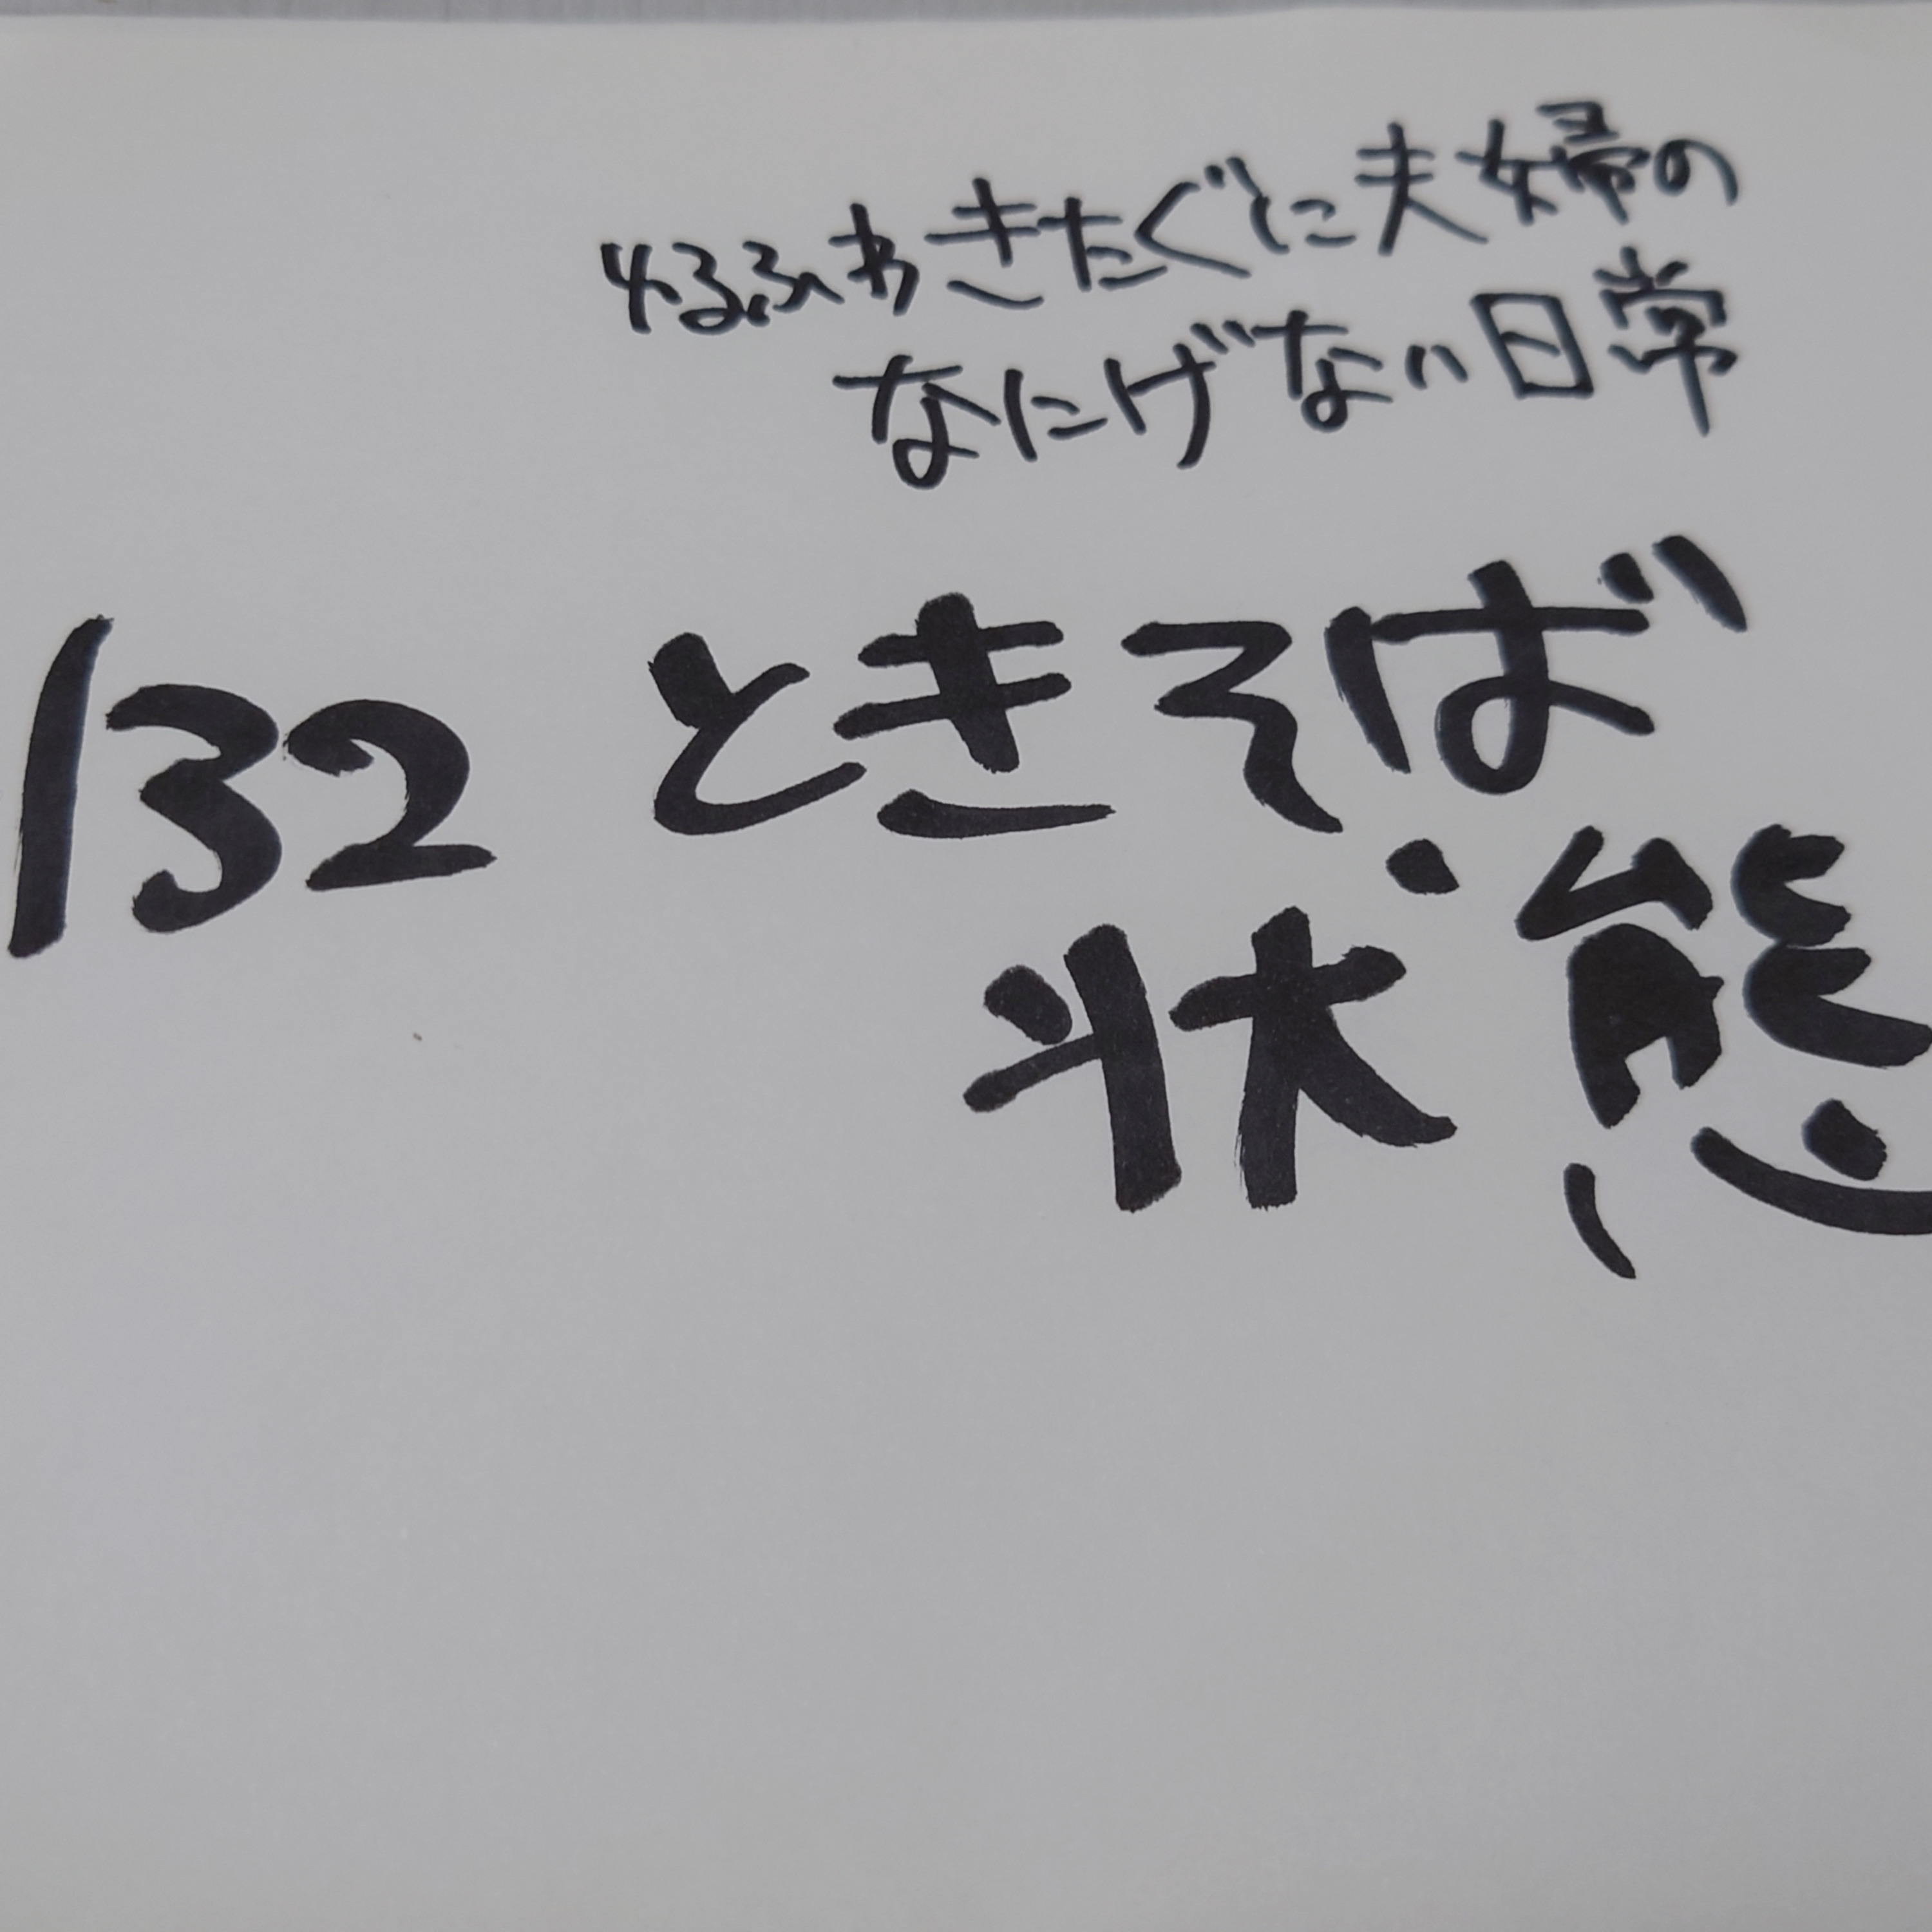 ゆるふわきたぐに夫婦の
なにげない日常
132 ときそば
状態